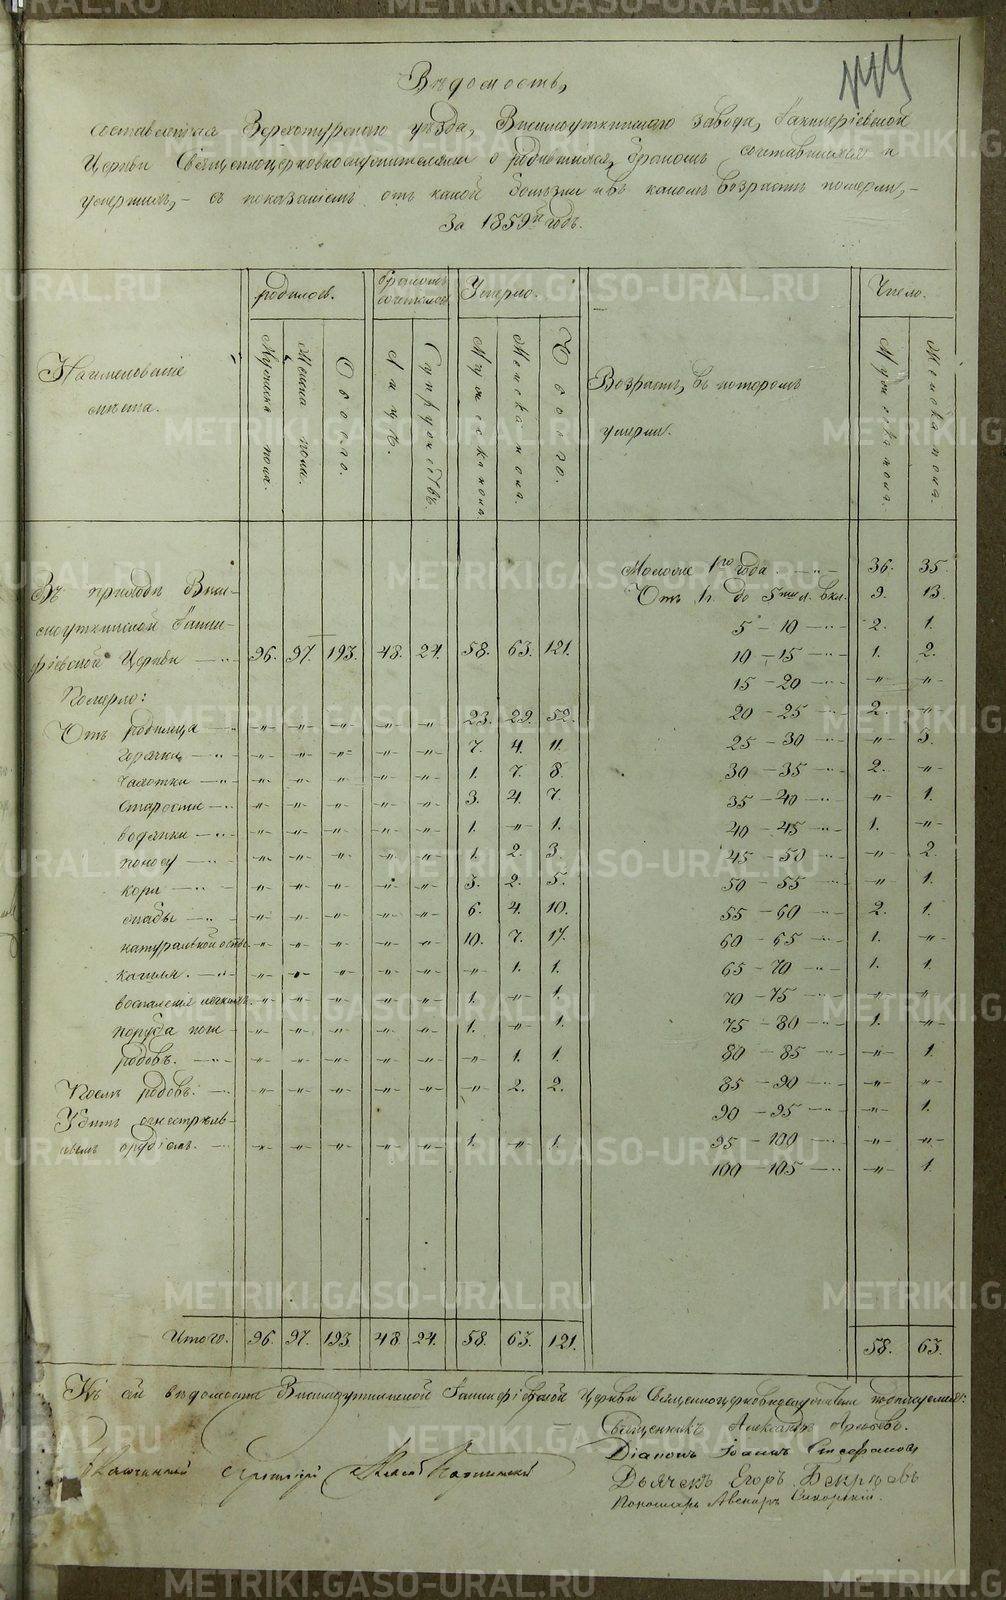 Вѣдомость,
составленная Верхотурскаго уѣзда, Висимоуткинскаго завода,
Церкви Священноцерковнослужителями о родившихся, бракомъ сочетавшихся и
умершихъ, – съ показаніемъ отъ какой болѣзни и въ какомъ возрастѣ померли, –
За 1859й годъ.
Наименованіе мѣста.
родилось.
Мужска пола.
Женска пола.
Обоего.
бракомъ сочеталось
Лицъ.
Супружествъ.
Умерло.
Мужеска пола
Женска пола.
Обоего.
Возрастъ, въ которомъ умерли.
Число.
Мужеска пола.
Женска пола.
Въ приходѣ Виси-
моуткинской
Церкви 96. 97. 193. 48. 24. 58. 63. 121.
Померло:
Отъ родимца – „ – „ – „ – „ – „ 23. 29. 52.
горячки – „ – „ – „ – „ – „ 7. 4. 11.
Чахотки – „ – „ – „ – „ – „ 1. 7. 8.
Старости – „ – „ – „ – „ – „ 3. 4. 7.
водянки – „ – „ – „ – „ – „ 1. „ 1.
поносу – „ – „ – „ – „ – „ 1. 2. 3.
кори – „ – „ – „ – „ – „ 3. 2. 5.
– „ – „ – „ – „ – „ 6. 4. 10.
натуральной оспы – „ – „ – „ – „ – „ 10. 7. 17.
кашля. – „ – „ – „ – „ – „ „ 1. 1.
воспаленія легкихъ. – „ – „ – „ – „ – „ 1. „ 1.
– „ – „ – „ – „ – „ 1. „ 1.
родовъ. – „ – „ – „ – „ – „ „ 1. 1.
Послѣ родовъ. – „ – „ – „ – „ – „ „ 2. 2.
Убитъ огнестрѣль-
нымъ орудіемъ. – „ – „ – „ – „ – „ 1. „ 1.
Моложе 1го года 36. 35.
Отъ 1. до 5ти л. вкл. 9. 13.
5 – 10 2. 1.
10 – 15 1. 2.
15 – 20 „ „
20 – 25 2. „
25 – 30 „ 3.
30 – 35 2. „
35 – 40 „ 1.
40 – 45 1. „
45 – 50 „ 2.
50 – 55 „ 1.
55 – 60 2. 1.
60 – 65 1. „
65 – 70 1. 1.
70 – 75 „ „
75 – 80 1. „
80 – 85 „ 1.
85 – 90 „ „
90 – 95 „ 1.
95 – 100 „ „
100 – 105 „ 1.
Итого. 96. 97. 193. 48. 24. 58. 63. 121. 58. 63.
Къ сей вѣдомости Висимоуткинской Церкви Священноцерковнослужители подписуемся:
Священникъ Александръ
Діаконъ Іоаннъ Стефановъ
Дьячекъ Егоръ
Пономарь
METRIKI.GASO-URAL.RU